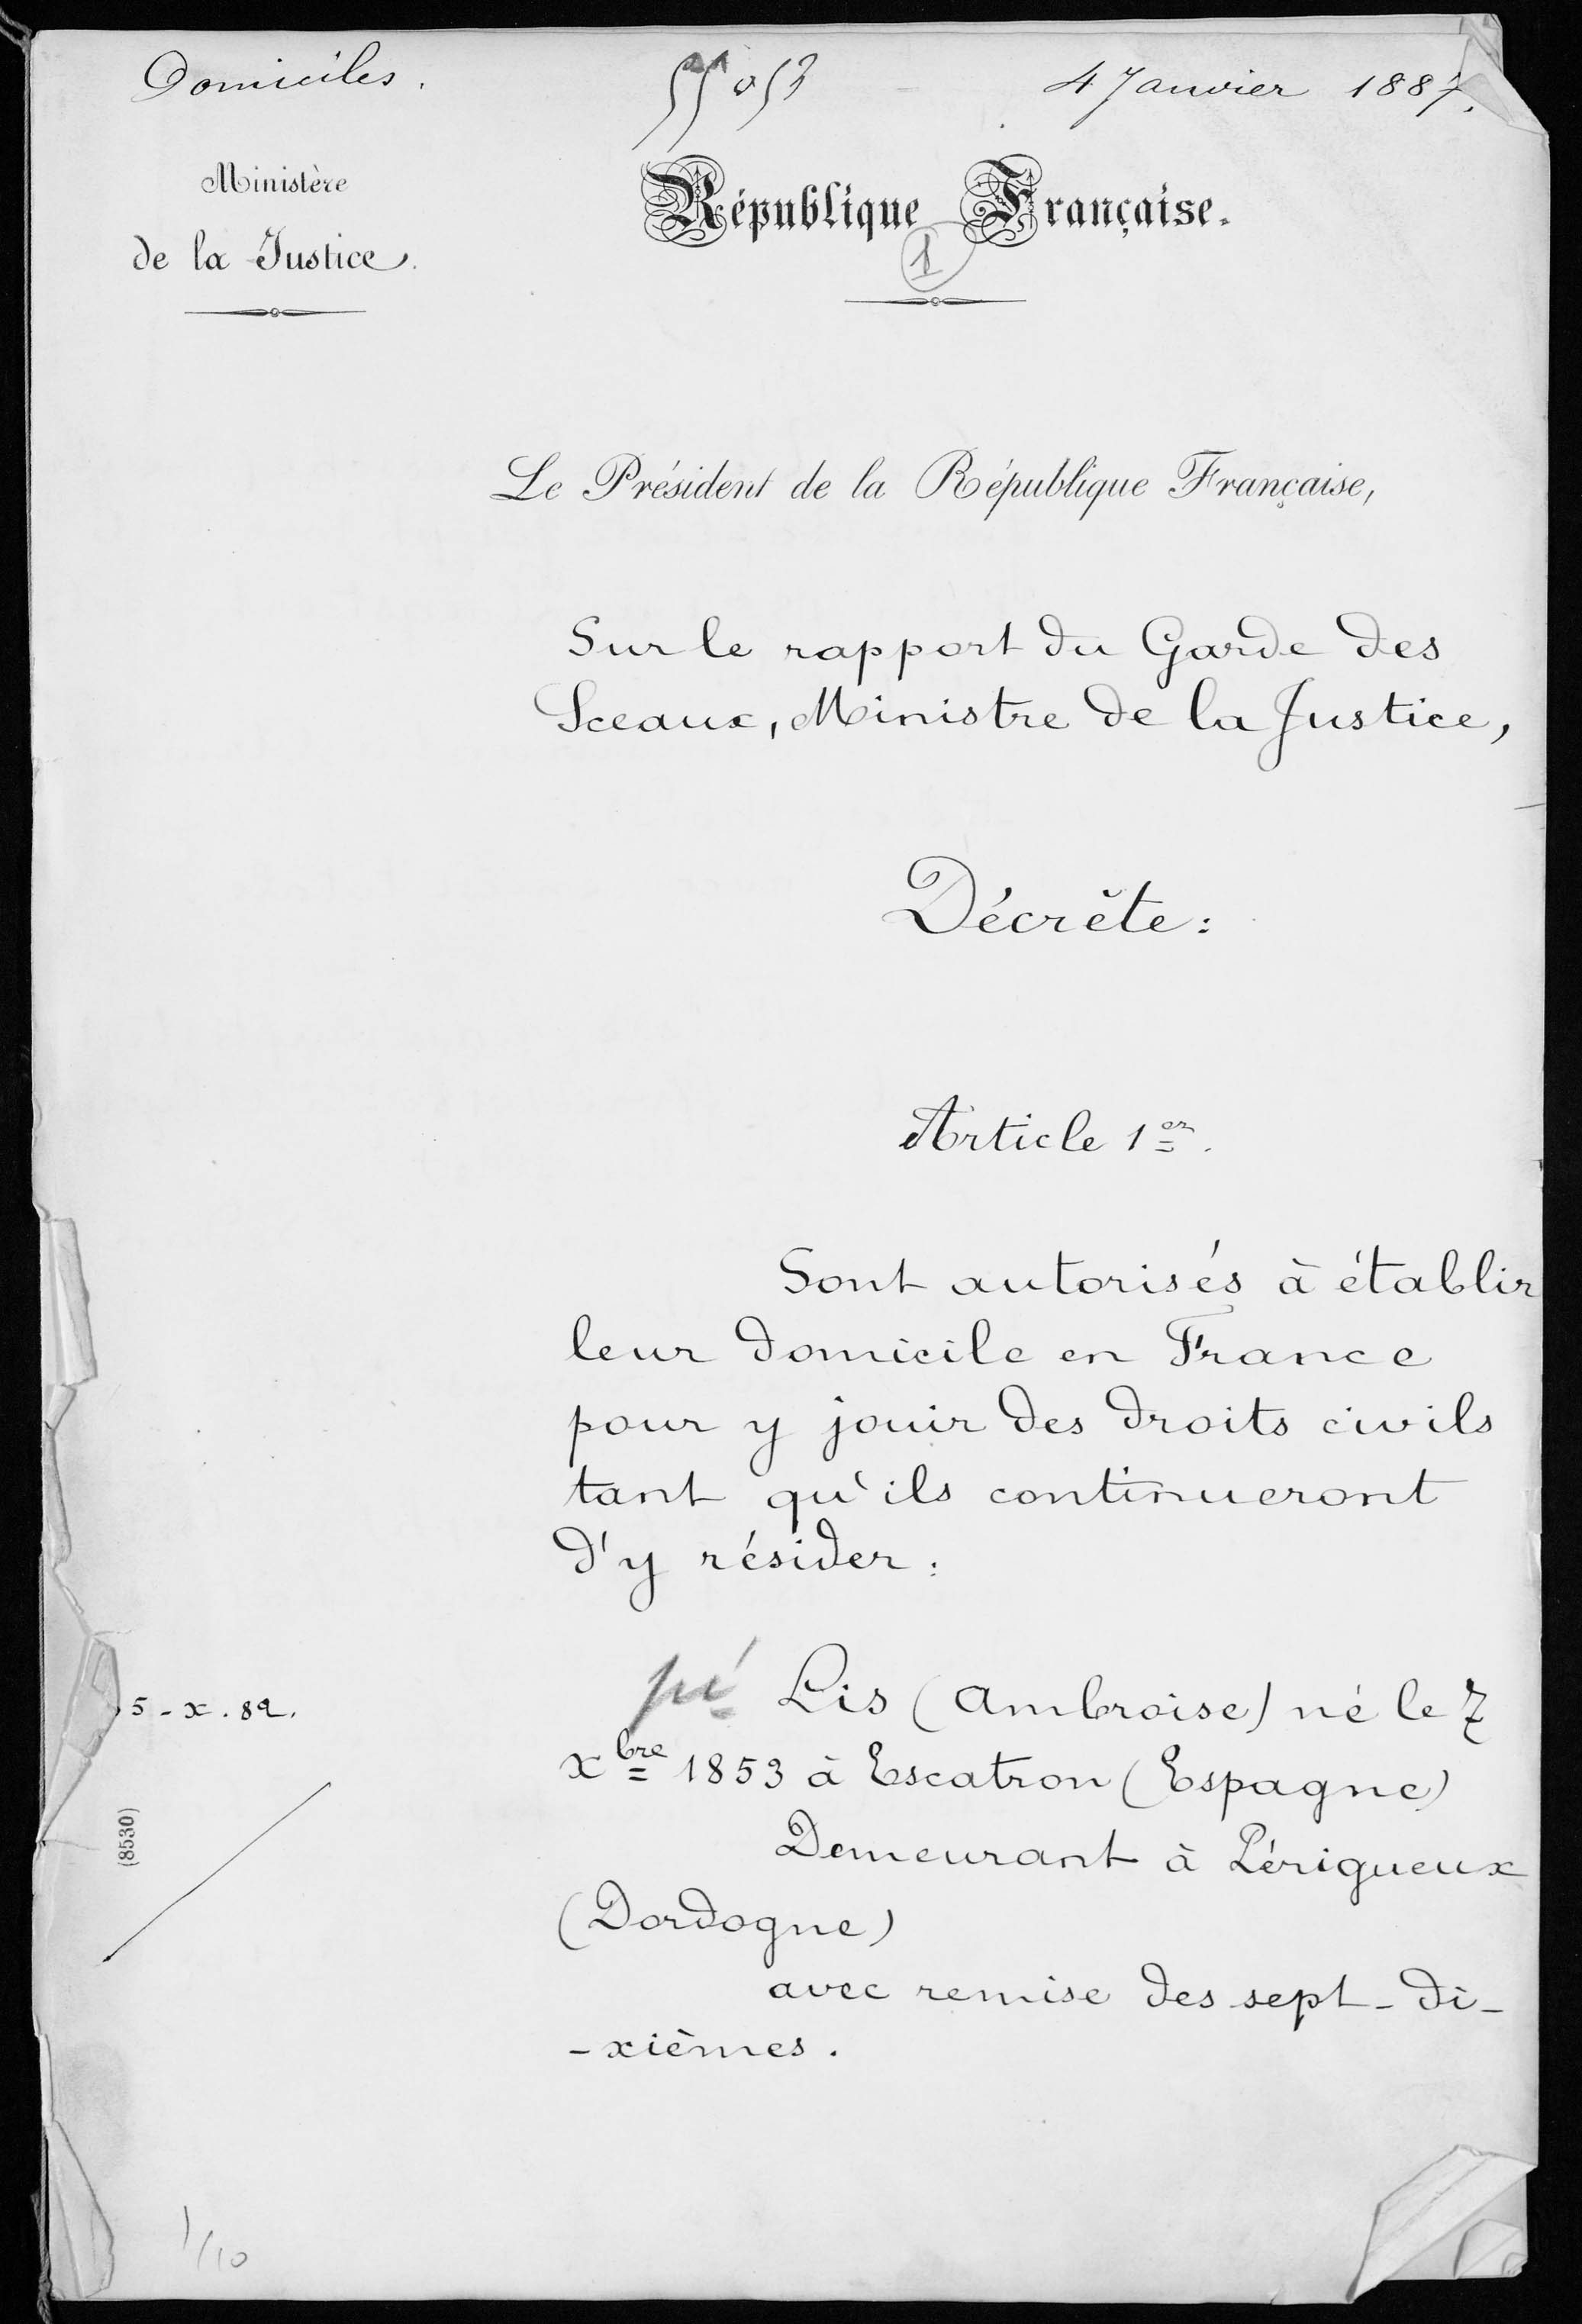 Domiciles.
4 Janvier 1887.
Ministère
de la Justice.
République Française.
1
Le Président de la République Française,
Sur le rapport du Garde des
Sceaux, Ministre de la Justice,
Décrète:
Article 1er.
Sont autorisés à établir
leur domicile en France
pour y jouir des droits civils
tant qu'ils continueront
d'y résider:
Lis (Ambroise) né le 7
xbre 1853 à Escatron (Espagne)
5-x.82.
(8530)
Demeurant à Périgueux
(Dordogne)
avec remise des sept-di-
-xièmes.
1/10